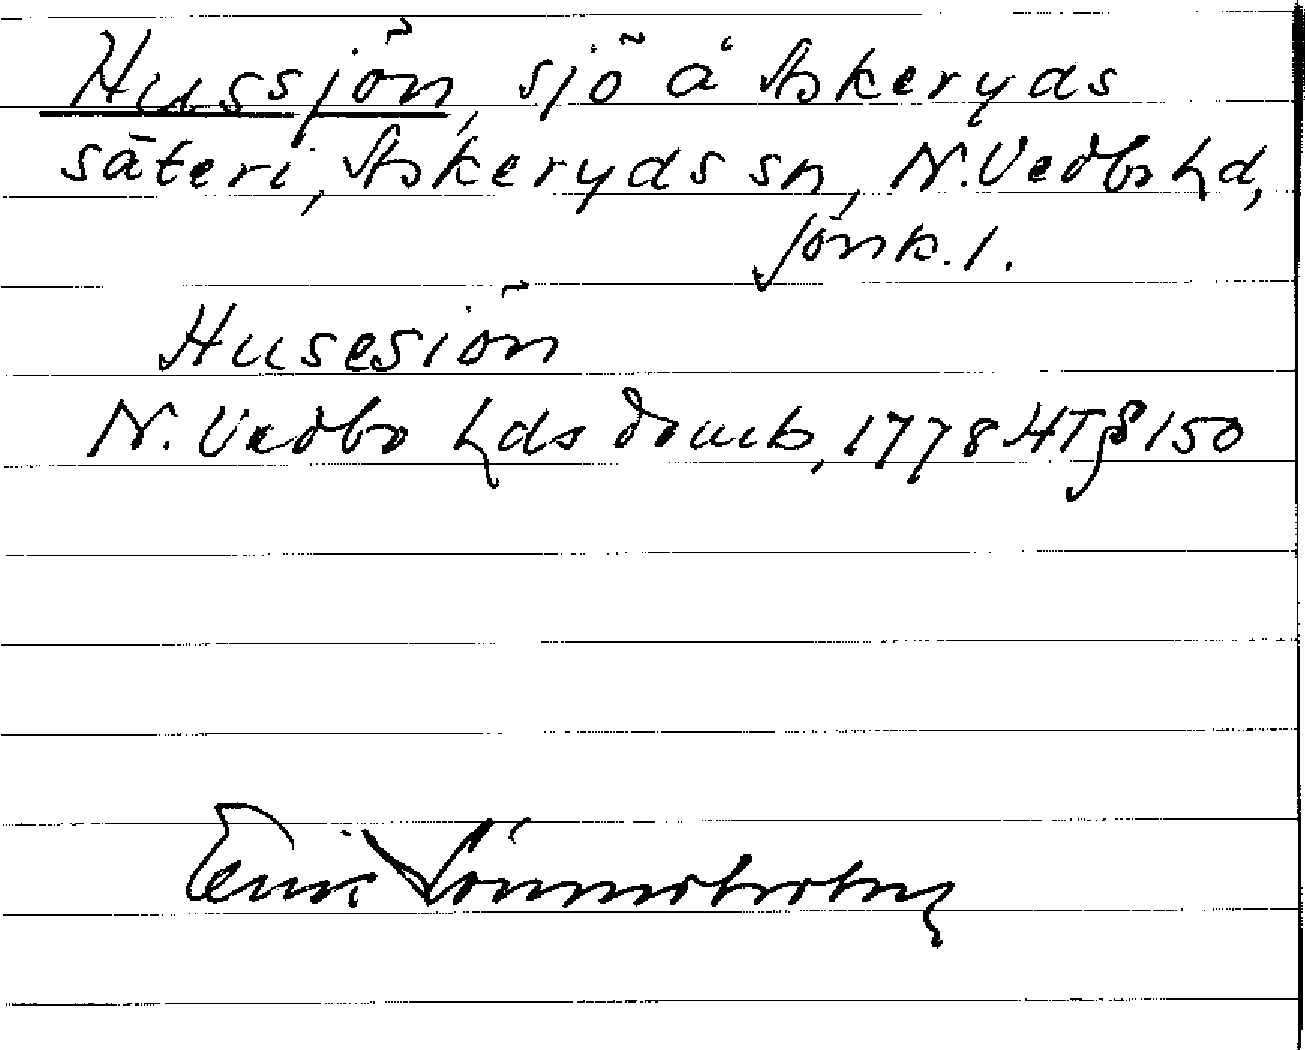 Hussjön, sjö å Askeryds
säteri, Askeryds sn, N. Vedbo hd,
Jönk. l.
Husesiön
N. Vedbo hds domb, 1778 HT § 150
Erik